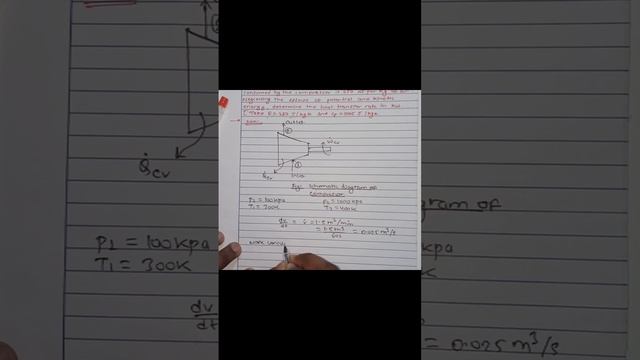 consumed by the compressor is 250
neglecting the effects of potential and kinetic
energy, determine the heat transfer rate in kW
(Take R = 287 J/kgK and Cp = 1005 J/kgK
Outlet
②
Ẇcv
①
Q̇cv
Inlet
Fig: Schematic diagram of
Compressor
P1 = 100kpa P2 = 1000kpa
T1 = 300K T2 = 400K
dv/dt = v̇ = 1.5 m³/min
= 1.5 m³/60s = 0.025 m³/s
Work
Q̇cv
P1 = 100kpa
T1 = 300K
dv
dt
gram of
0.025 m³/s